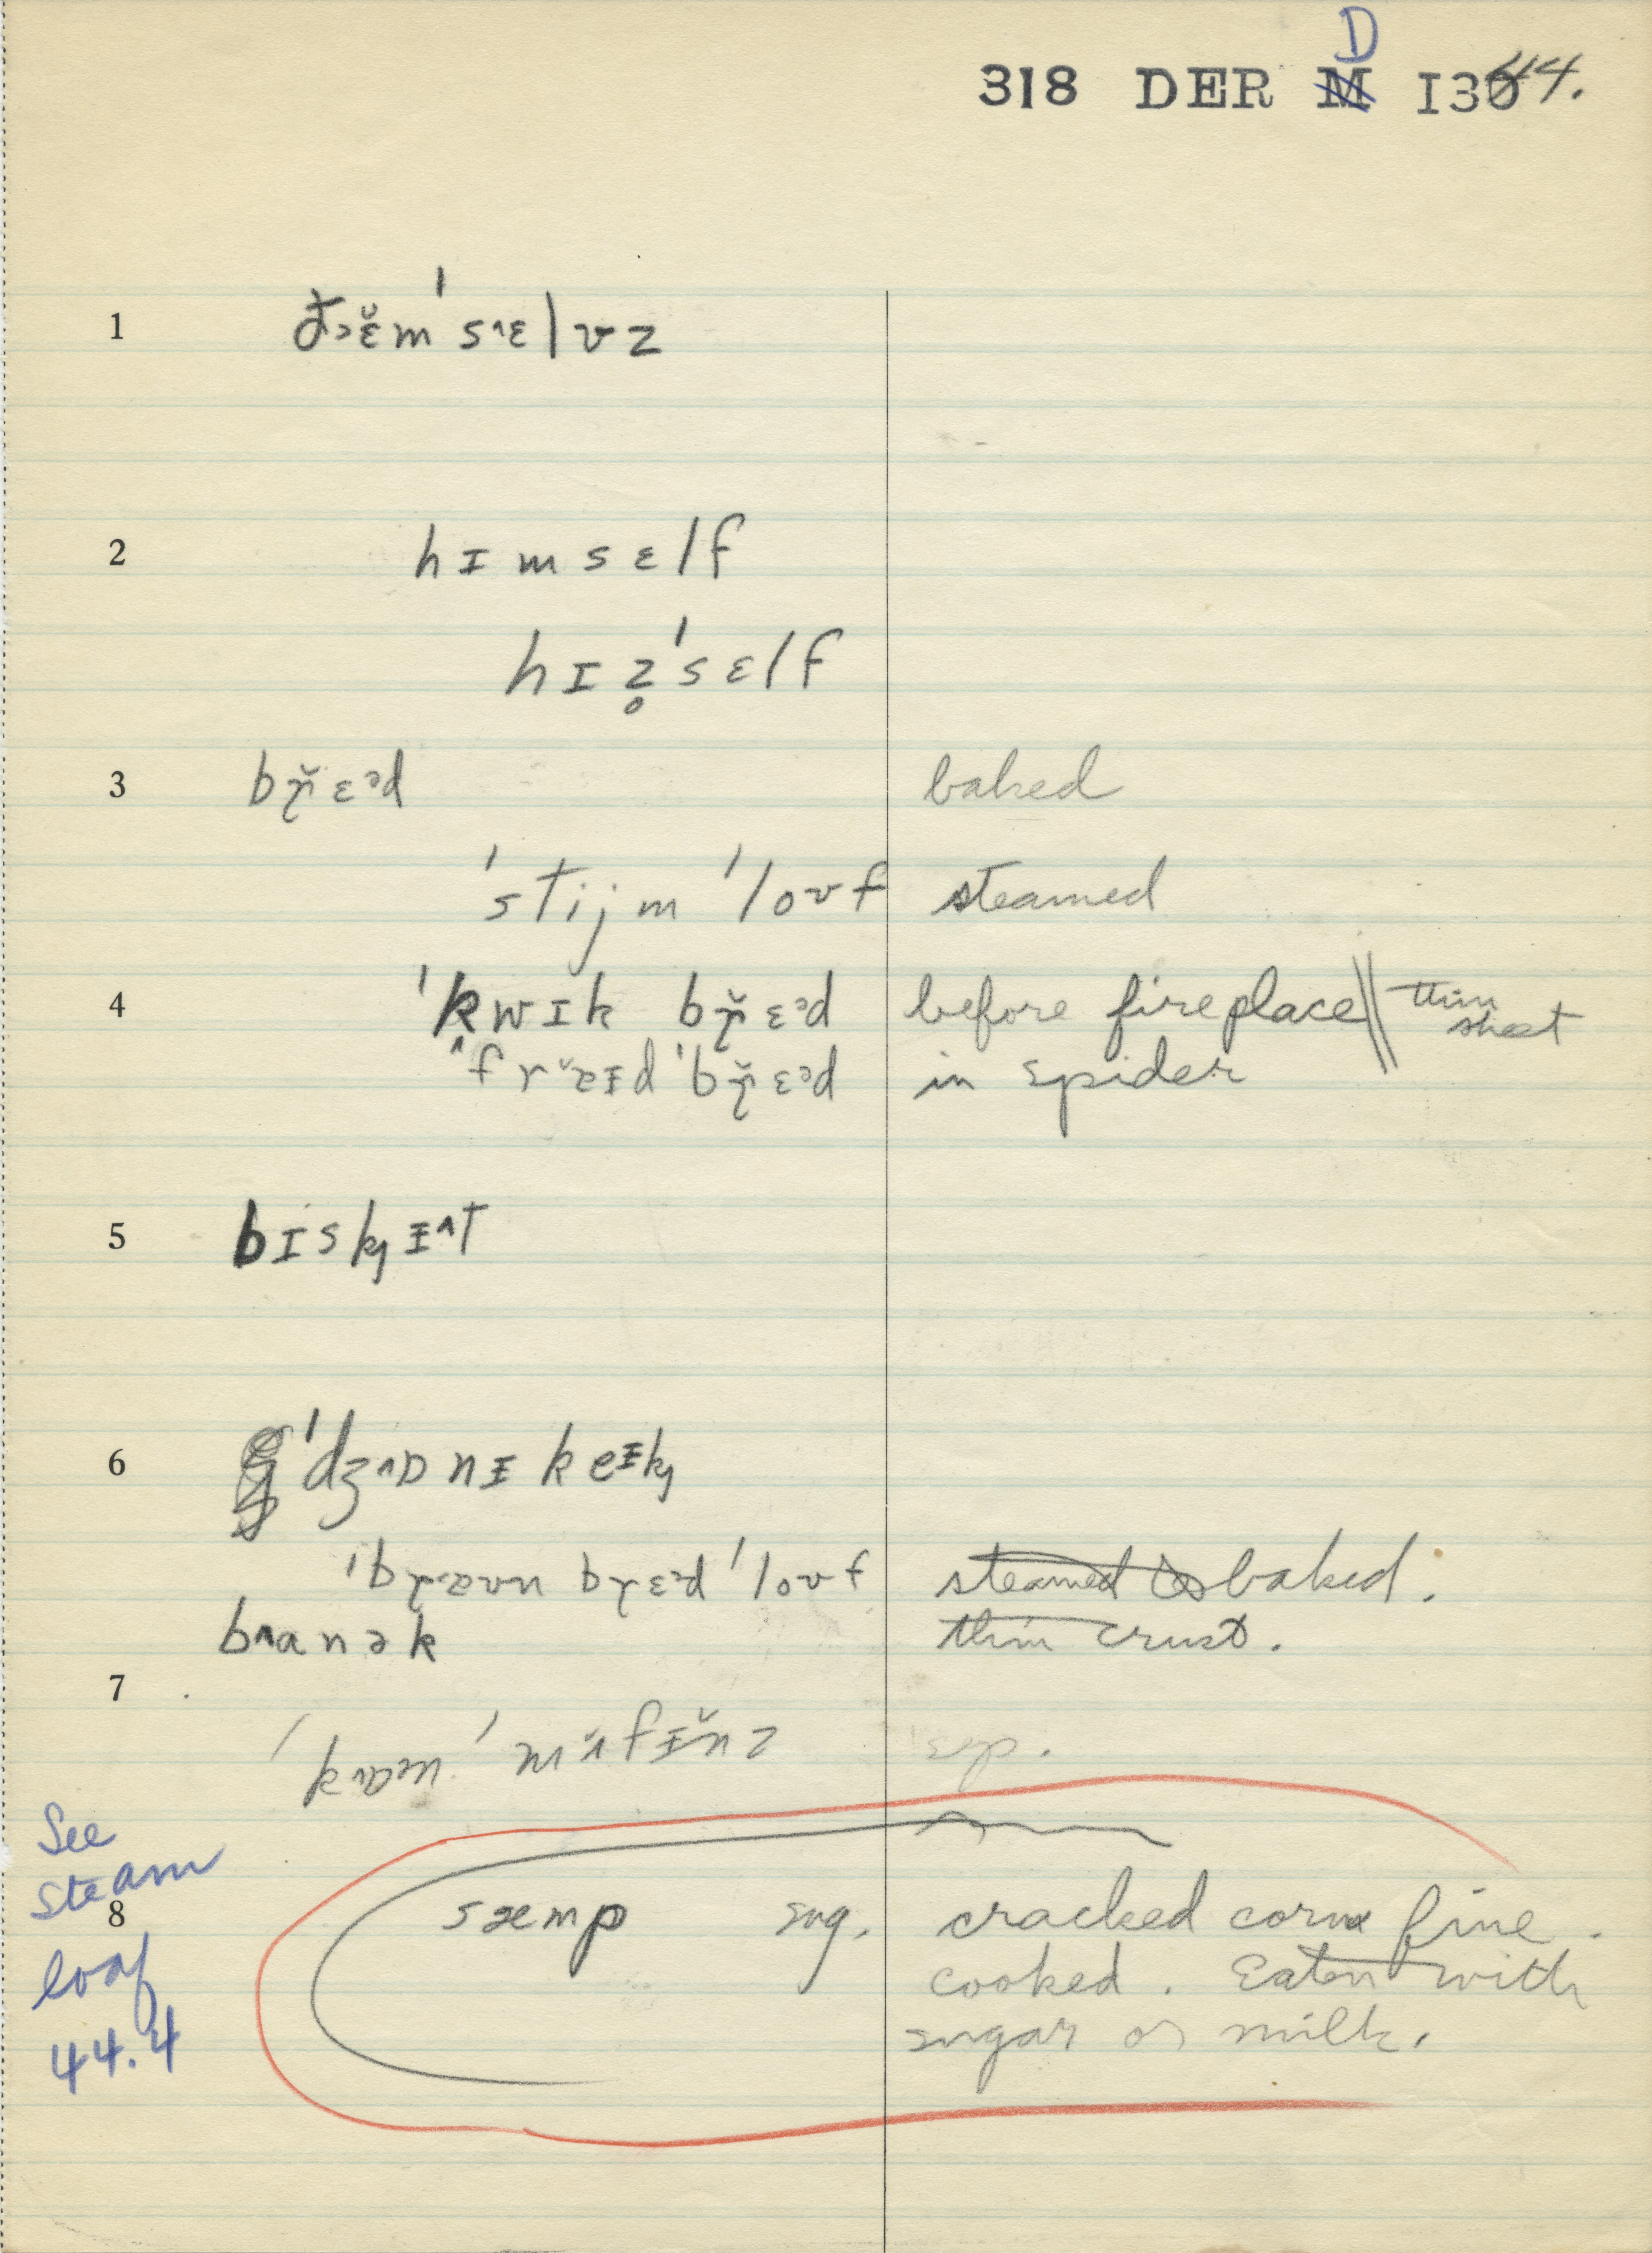 D
318 DER M I3044.
1 đɔɛ̆m'sᴧɛlvz
2 hɪmsɛlf
hɪz̥'sɛlf
3 br̯̆ɛᵊd baked
'stijm 'loʊf steamed
4 'kwɪk br̯̆ɛᵊd before fireplace || thin sheet
ˆfræɪd 'br̯̆ɛᵊd in spider
5 bɪskȷɪ^t
6 'dʒ^ɒnɪ keɪkȷ
'bræʊn brɛᵊd 'loʊf steamed baked.
b^anək thin crust.
7
'kɒən 'mʌ̆fɪ̆nz
See
steam
8 sæmp sug. cracked corn fine.
loaf cooked. Eaten with
44.4 sugar or milk.